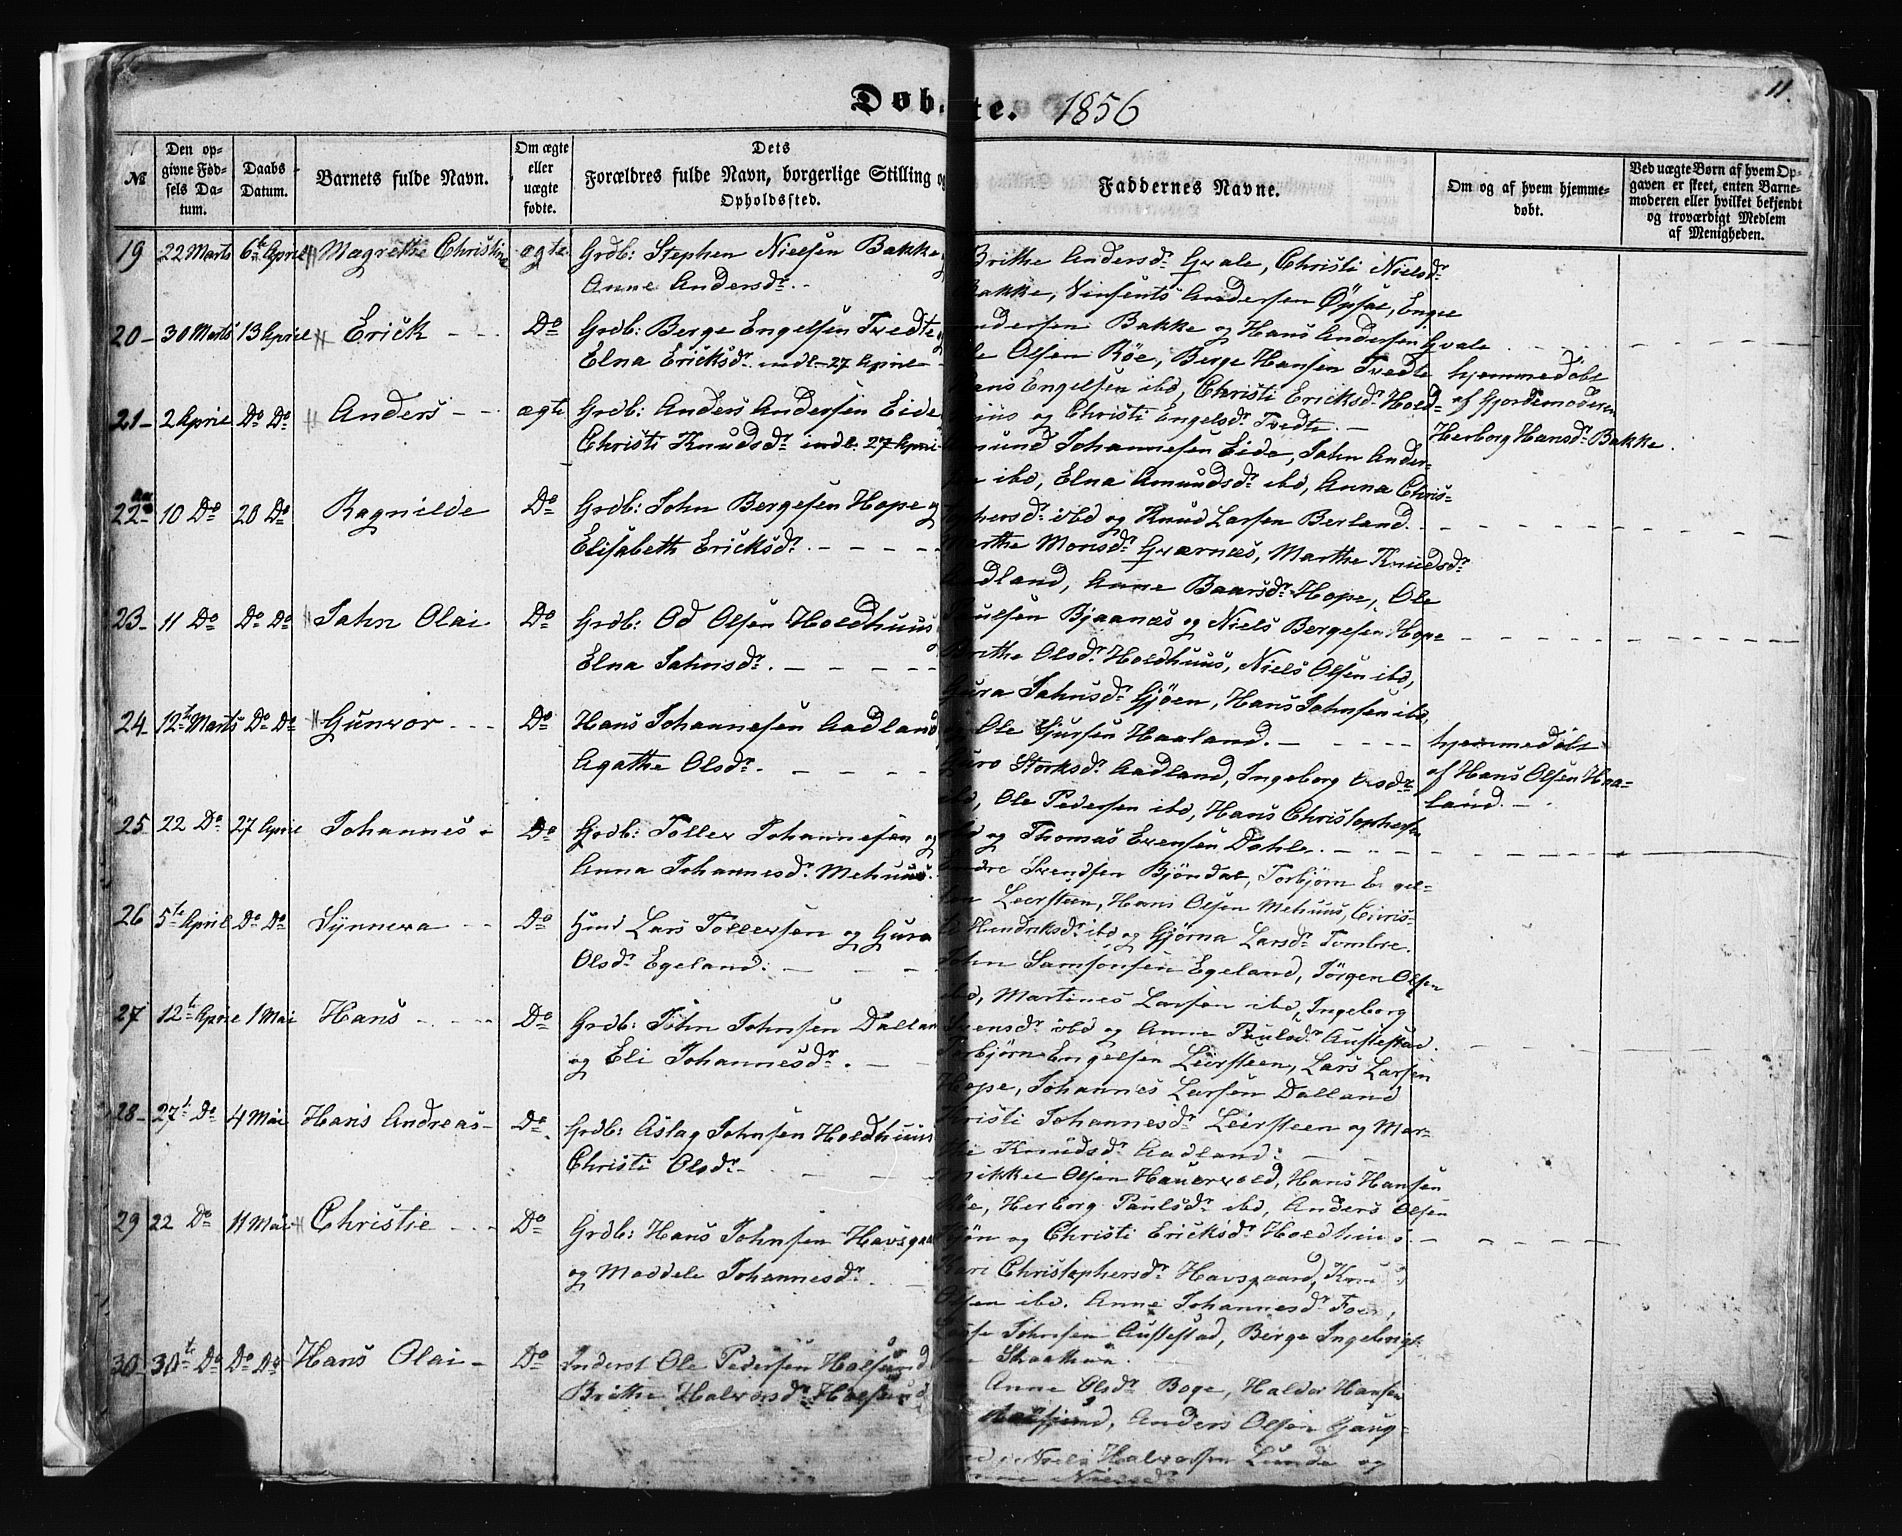 Døb. te. 1856
11.
№
Den op-
givne Fød-
sels Da-
tum.
Daabs
Datum.
Barnets fulde Navn.
Om ægte
eller
uægte
fødte.
Dets
Forældres fulde Navn, borgerlige Stilling og
Opholdssted.
Faddernes Navne.
Om og af hvem hjemme-
døbt.
Ved uægte Børn af hvem Op-
gaven er skeet, enten Barne-
moderen eller hvilket bekjendt
og troværdigt Medlem
af Menigheden.
19 22 Marts 6te April Magrethe Christine ægte Grdb: Stephen Nielsen Bakke
Anne Andersdr.
Brithe Andersdr Gvale, Christi Nielsdr
Bakke, Vinsents Andersen Øpsal, Engel
Andersen Bakke og Hans Andersen Gvale
20 30 Marts 13 April Erick Do Grdb: Berge Engelsen Tvedte
Elna Ericksdr indl. 27 April
Ole Olsen Röe, Berge Hansen Tvedte
Hans Engelsen ibd, Christi Ericksdr Hold-
huus og Christi Engelsdr Tvedte.
hjemmedöbt
af Gjordemoderen
Herborg Hansdr Bakke.
21 2 April Do Do Anders ægte Grdb: Anders Andersen Eide
Christi Knudsdr indl. 27 April
Amund Johannesen Eide, John Ander-
sen ibd, Elna Amundsdr ibd, Anna Chris-
tophersdr ibd og Knud Larsen Berland
22 10 Do 20 Do Ragnilde Do Grdb: John Bergesen Hope og
Elisabeth Ericksdr.
Marthe Monsdr Gvernæs, Marthe Knudsdr
Aadland, Anne Baarsdr Hope, Ole
Poulsen Bjaanæs og Niels Bergesen Hope
23 11 Do Do Do John Olai Do Grdb: Od Olsen Holdhuus
Elna Johnsdr.
Brithe Olsdr Holdhuus, Niels Olsen ibd,
Gura Johnsdr Gjöen, Hans Johnsen ibd,
Ole Sjursen Haaland.
24 12te Marts Do Do Gunvor Do Hans Johannesen Aadland
Agathe Olsdr.
Guro Storksdr Aadland, Ingeborg Olsdr
ibd, Ole Pedersen ibd, Hans Christophersen
ibd og Thomas Evensen Dahle.
hjemmedöbt
af Hans Olsen Haa-
land.
25 22 Do 27 April Johannes Do Grdb: Toller Johannesen og
Anna Johannesdr Mehuus.
Endre Svendsen Bjöndal, Torbjörn Engel-
sen Leersteen, Hans Olsen Mehuus, Chris-
ti Hendriksdr ibd og Gjörna Larsdr Tombre.
26 5te April Do Do Synneva Do Huus Lars Tollersen og Gura
Olsdr Egeland.
John Samsonsen Egeland, Jörgen Olsen
ibd, Martines Larsen ibd, Ingeborg
Svensdr ibd og Anne Poulsdr Austestad.
27 12te April 1 Mai Hans Do Grdb: John Johnsen Dalland
og Eli Johannesdr.
Torbjörn Engelsen Leirsteen, Lars Larsen
Hope, Johannes Larsen Dalland
Christi Johannesdr Leirsteen og Mar-
the Knudsdr Aadland.
28 27te Do 4 Mai Hans Andreas Do Grdb: Aslag Johnsen Holdhuus
Christi Olsdr
Mikkel Olsen Hauervold, Hans Hansen
Röe, Herborg Paulsdr ibd, Anders Olsen
Gjön og Christi Ericksdr Holdhuus
29 22 Do 11 Mai Christie Do Grdb: Hans Johnsen Havsgaard
og Maddele Johannesdr.
Kari Christophersdr Havsgaard, Knud
Olsen ibd. Anne Johannesdr
Lasse Johnsen Austestad, Berge Ingebrigt-
sen Skaathun.
30 30te Do Do Do Hans Olai Do Inderst Ole Pedersen Holsund
Brithe Halvorsdr Holsund
Anne Olsdr Boge, Haldor Hansen
Holsund, Anders Olsen Gaug-
stad, Niels Halvorsen Lunde og
Anne Nielsdr